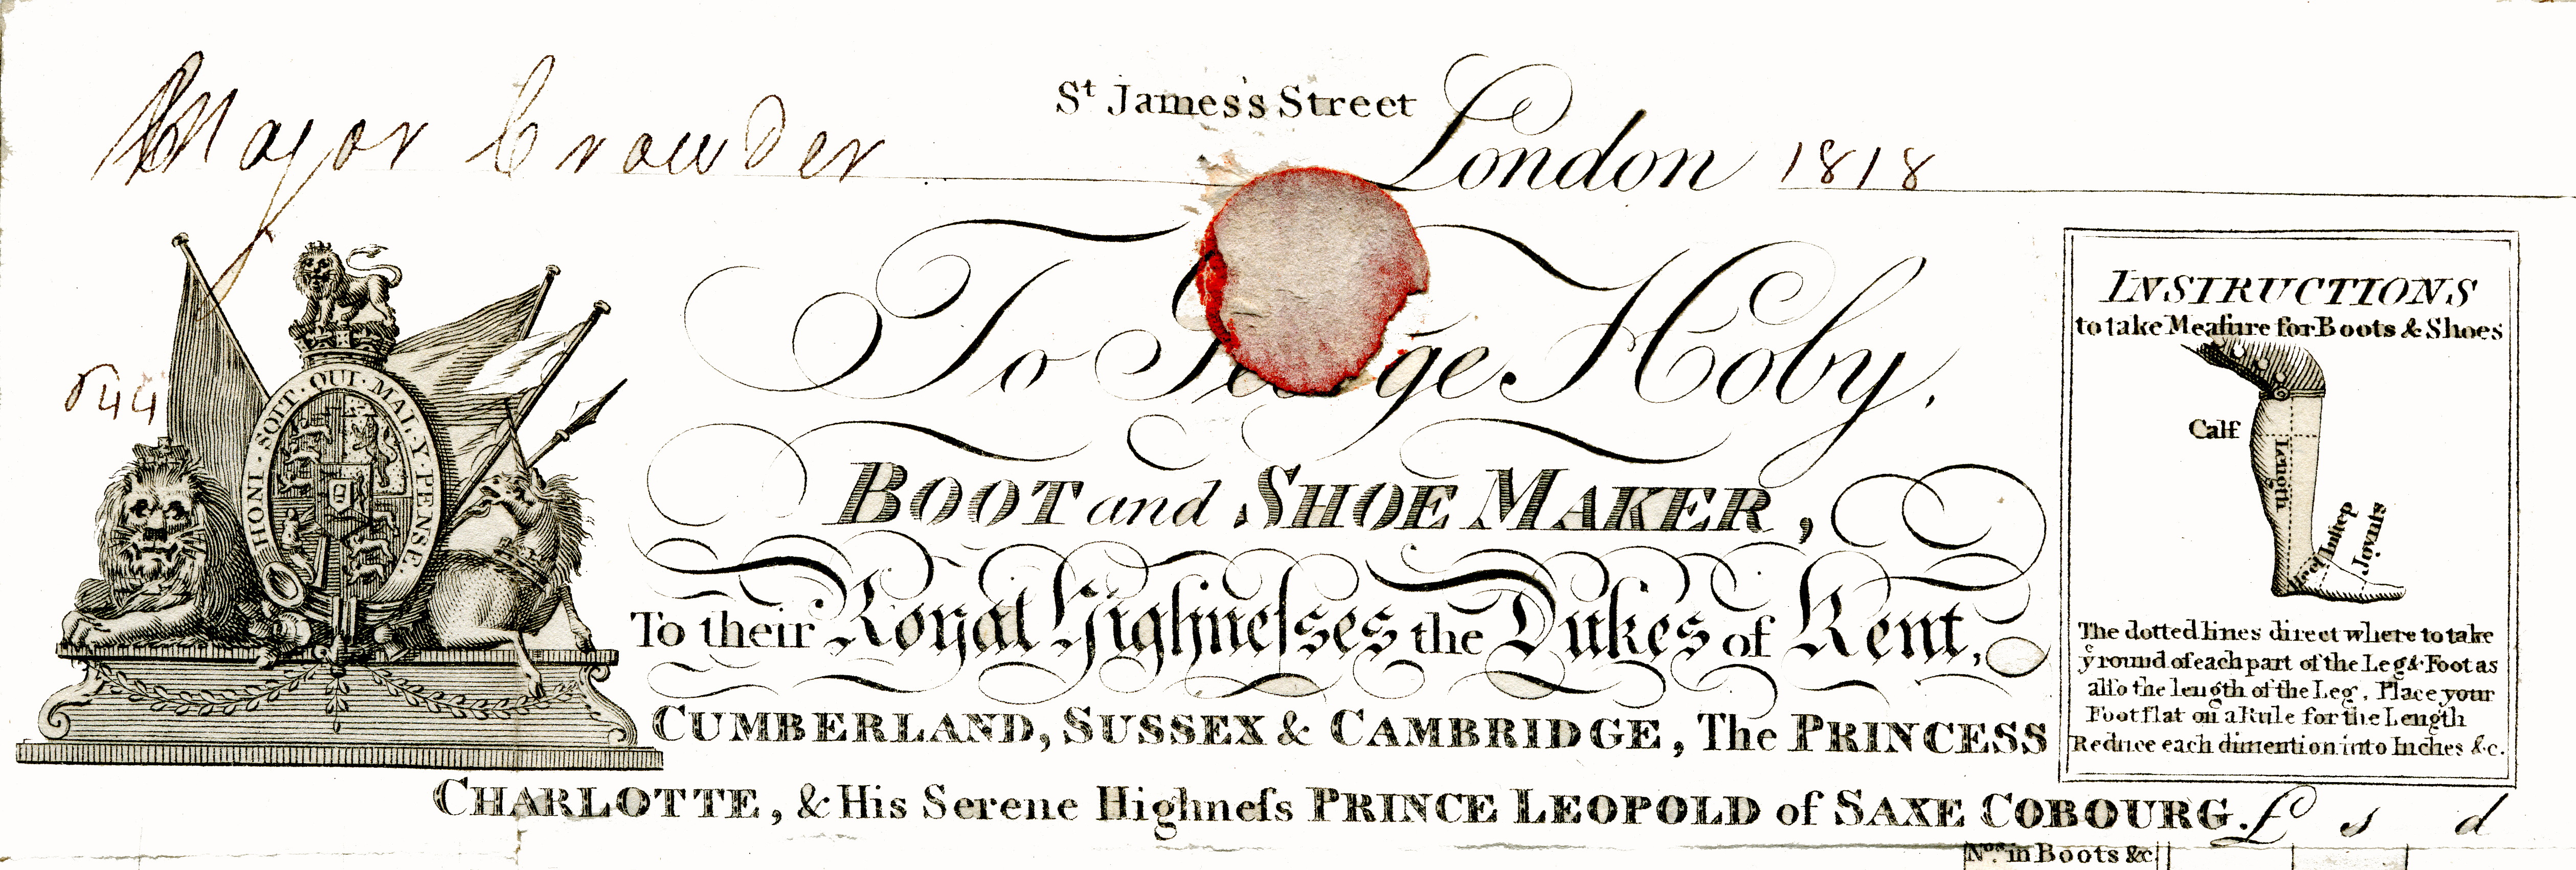 Major Crowder
St James's Street London 1818
To George Hoby.
BOOT and SHOE MAKER,
To their Royal Highneſses the Dukes of Kent,
CUMBERLAND, SUSSEX & CAMBRIDGE, The PRINCESS
CHARLOTTE, & His Serene Highneſs PRINCE LEOPOLD of SAXE COBOURG.
£ s d
Nos. in Boots &c
544
HONI·SOIT·QUI·MAL·Y·PENSE
INSTRUCTIONS
to take Meaſure for Boots & Shoes
Calf
Length
Heel
Inſtep
Joynts
The dotted lines direct where to take
ye round of each part of the Leg & Foot as
alſo the length of the Leg. Place your
Foot flat on a Rule for the Length
Reduce each dimention into Inches &c.